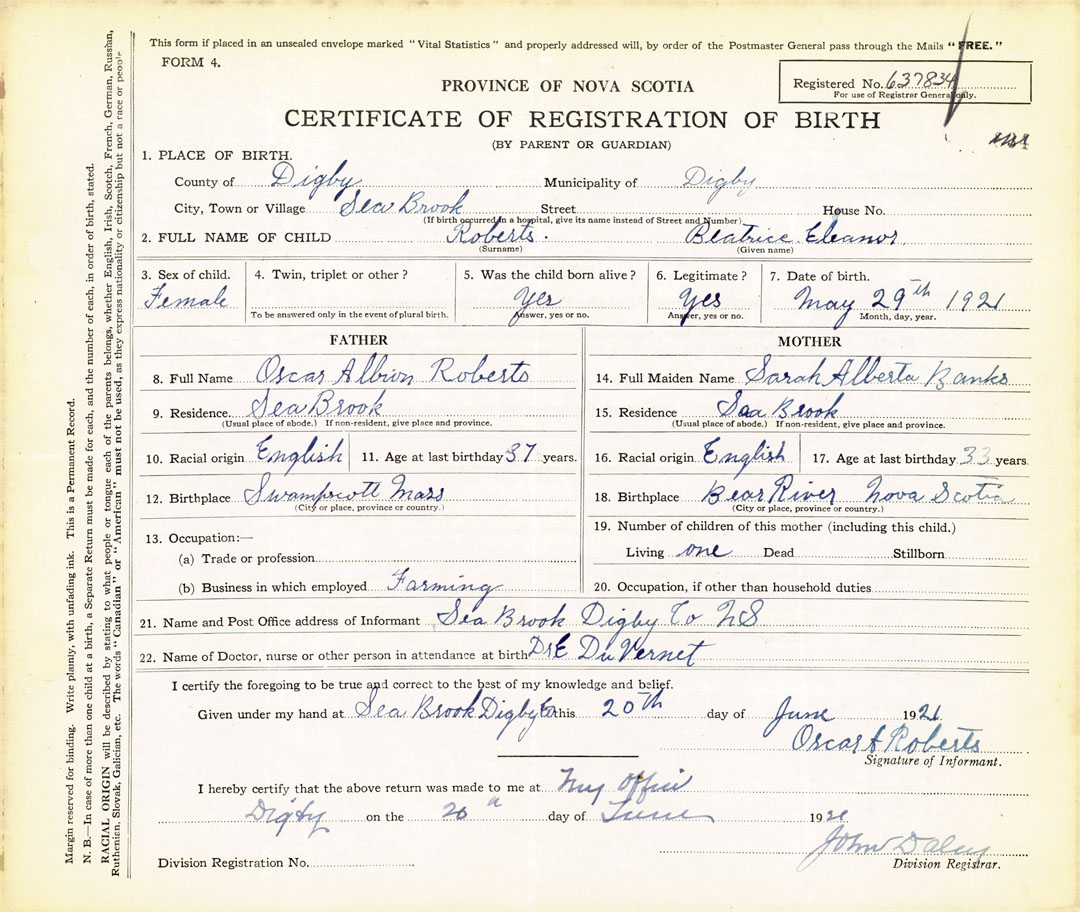 This form if placed in an unsealed envelope marked "Vital Statistics" and properly addressed will, by order of the Postmaster General pass through the Mails "FREE."
FORM 4.
Registered No. 637834
For use of Registrar General only.
PROVINCE OF NOVA SCOTIA
CERTIFICATE OF REGISTRATION OF BIRTH
(BY PARENT OR GUARDIAN)
1. PLACE OF BIRTH.
County of Digby Municipality of Digby
City, Town or Village Sea Brook Street House No.
(If birth occurred in a hospital, give its name instead of Street and Number)
2. FULL NAME OF CHILD Roberts. Beatrice Eleanor
(Surname) (Given name)
3. Sex of child. 4. Twin, triplet or other? 5. Was the child born alive? 6. Legitimate? 7. Date of birth.
Female Yes Yes May 29th 1921
To be answered only in the event of plural birth. Answer, yes or no. Answer, yes or no. Month, day, year.
FATHER
8. Full Name Oscar Albion Roberts
9. Residence. Sea Brook
(Usual place of abode.) If non-resident, give place and province.
10. Racial origin English 11. Age at last birthday 37 years.
12. Birthplace Swampscott Mass
(City or place, province or country.)
13. Occupation:—
(a) Trade or profession
(b) Business in which employed Farming
MOTHER
14. Full Maiden Name Sarah Alberta Banks
15. Residence Sea Brook
(Usual place of abode.) If non-resident, give place and province.
16. Racial origin English 17. Age at last birthday 33 years
18. Birthplace Bear River Nova Scotia
(City or place, province or country.)
19. Number of children of this mother (including this child.)
Living one Dead Stillborn
20. Occupation, if other than household duties
21. Name and Post Office address of Informant Sea Brook Digby Co NS
22. Name of Doctor, nurse or other person in attendance at birth Dr E Du Vernet
I certify the foregoing to be true and correct to the best of my knowledge and belief.
Given under my hand at Sea Brook Digby Co this 20th day of June 1921
Oscar A Roberts
Signature of Informant.
I hereby certify that the above return was made to me at My Office
Digby on the 20 day of June 19
John Daley
Division Registration No. Division Registrar.
Margin reserved for binding. Write plainly, with unfading ink. This is a Permanent Record.
N. B.—In case of more than one child at a birth, a Separate Return must be made for each, and the number of each, in order of birth, stated.
RACIAL ORIGIN will be described by stating to what people or tongue each of the parents belongs, whether English, Irish, Scotch, French, German, Russian,
Ruthenian, Slovak, Galician, etc. The words "Canadian" or "American" must not be used, as they express nationality or citizenship but not a race or people